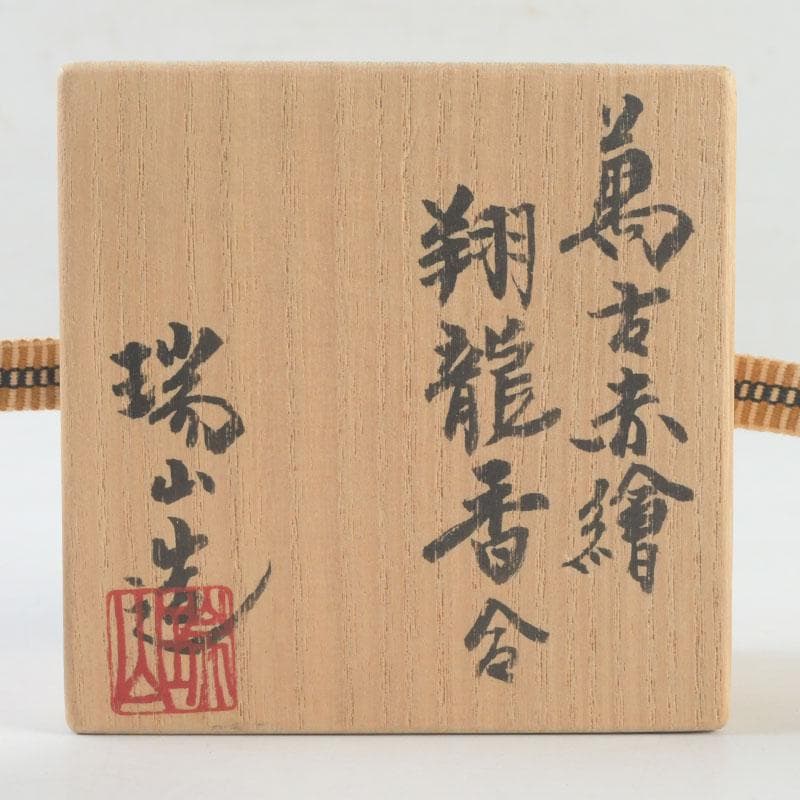 萬古赤繪
翔龍香合
瑞山造
瑞山